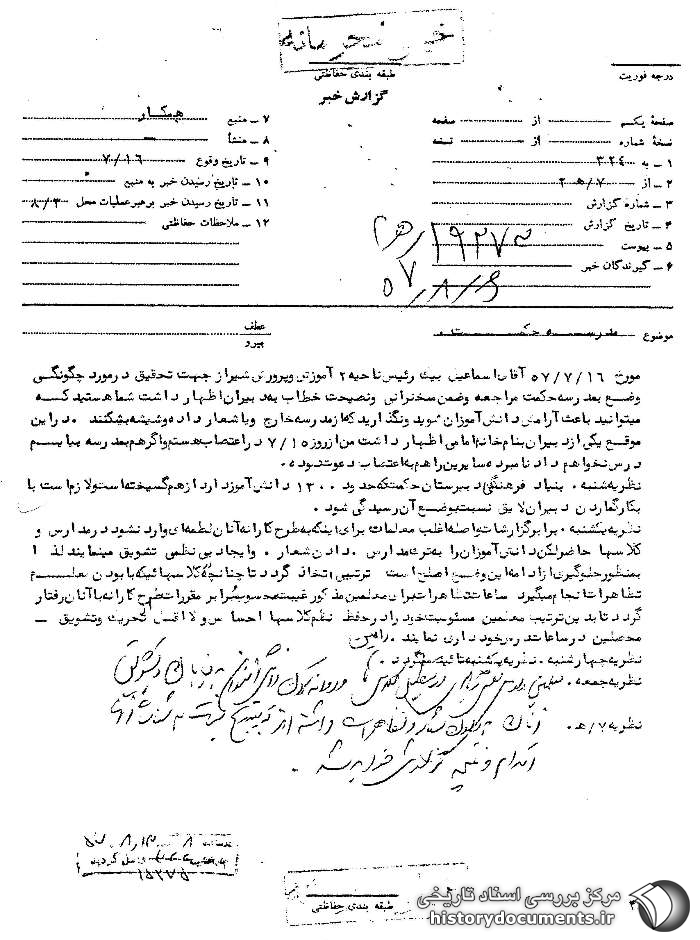 خیلی محرمانه
طبقه بندی حفاظتی
گزارش خبر
درجه فوریت
صفحهٔ یکم از صفحه
نسخهٔ شماره از نسخه
۱ – به ۳۲۴
۲ – از ۷/هـ ۲
۳ – شماره گزارش
۴ – تاریخ گزارش
۵ – پیوست
۶ – گیرندگان خبر
۵۷/۸/۶
۷ – منبع همکار
۸ – منشأ
۹ – تاریخ وقوع ۷/۱۶
۱۰ – تاریخ رسیدن خبر به منبع
۱۱ – تاریخ رسیدن خبر برهبر عملیات محل ۸/۳
۱۲ – ملاحظات حفاظتی
موضوع مدرسه حکمت
عطف
پیرو
مورخ ۵۷/۷/۱۶ آقای اسماعیل بیک رئیس ناحیه ۲ آموزش وپرورش شیراز جهت تحقیق درمورد چگونگی
وضع بمدرسه حکمت مراجعه وضمن سخنرانی ونصیحت خطاب به دبیران اظهار داشت شما هستید که
میتوانید باعث آرامش دانش آموزان شوید ونگذارید که از مدرسه خارج ویا شعار داده وشیشه بشکنند . دراین
موقع یکی از دبیران بنام خانم امامی اظهار داشت من از روز ۷/۱۵ در اعتصاب هستم واگر هم بمدرسه بیایم
درس نخواهم داد نامبرده سایرین را هم به اعتصاب دعوت نموده .
نظریه شنبه . بنیاد فرهنگی دبیرستان حکمت که حدود ۱۳۰۰ دانش آموز دارد از هم گسیخته است ولازم است با
بکار گماردن دبیران لایق نسبت بوضع آن رسیدگی شود .
نظریه یکشنبه . برابر گزارشات واصله اغلب معلمات برای اینکه به طرح کارانه آنان لطمه ای وارد نشود در مدارس و
کلاسها حاضر لکن دانش آموزان را به ترک مدارس . دادن شعار . وایجاد بی نظمی تشویق مینمایند لذا
بمنظور جلوگیری از ادامه این وضع اصلح است ترتیبی اتخاذ گردد تا چنانچه کلاسهائیکه با بودن معلم
تظاهرات انجام میگیرد ساعات تظاهرات برای معلمین مذکور غیبت محسوب وبرابر مقررات طرح کارانه با آنان رفتار
گردد تا بدین ترتیب معلمین مسئولیت خود را در حفظ نظم کلاسها احساس ولااقل از تحریک وتشویق –
محصلین در ساعات تدریس خود داری نمایند . رامین
نظریه چهارشنبه . نظریه یکشنبه تائید میگردد .
نظریه جمعه .
نظریه ۷/هـ .
اقدام و نتیجه گزارش خواهد شد .
۱۵۲۷۵
طبقه بندی حفاظتی
مرکز بررسی اسناد تاریخی
historydocuments.ir